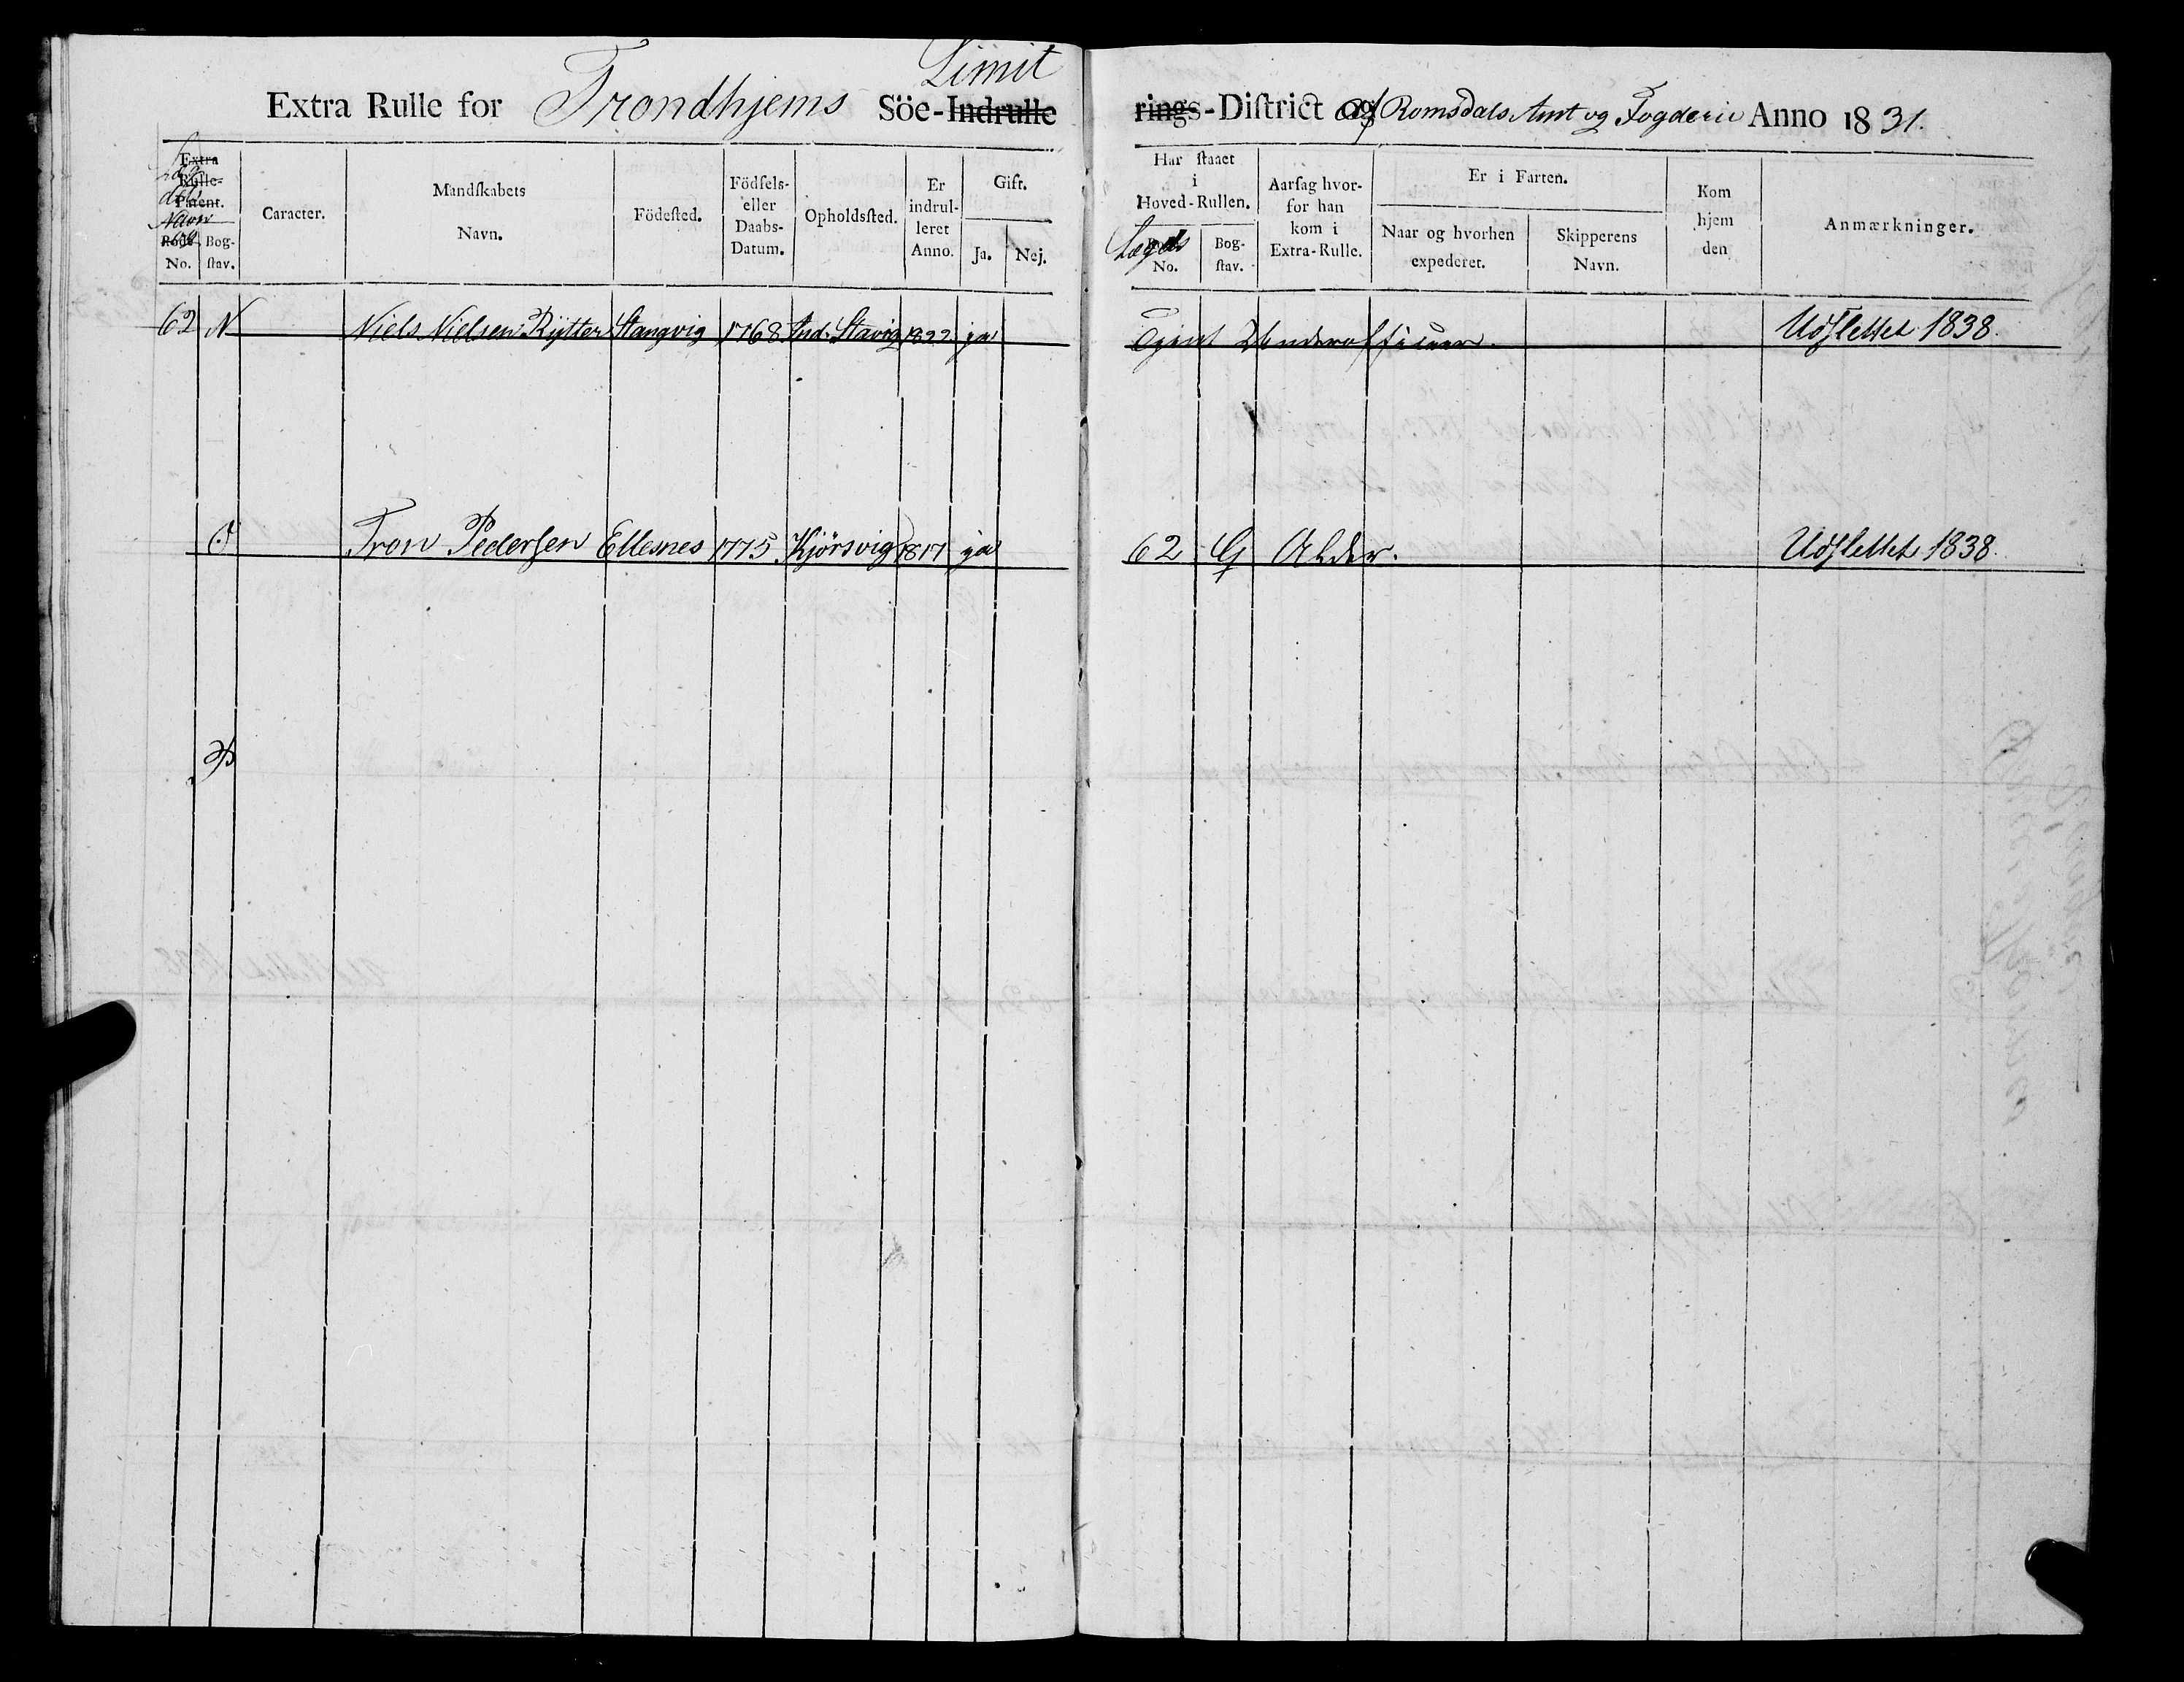 Limit
Extra Rulle for Trondhjems Söe-Indrulle rings-Diſtrict af Romsdals Amt og Fogderie Anno 1831.
Extra Rulle-Patent.
Navn
Rode No.
Bog-ſtav.
Caracter.
Mandſkabets Navn.
Födeſted.
Födſels- eller Daabs-Datum.
Opholdsſted.
Er indrulleret Anno.
Gift.
Ja.
Nej.
Har ſtaaet i Hoved-Rullen.
Lægds No.
Bog-ſtav.
Aarſag hvorfor han kom i Extra-Rulle.
Er i Farten.
Naar og hvorhen expederet.
Skipperens Navn.
Kom hjem den
Anmærkninger.
62 N Niels Nielsen Rytter Stangvig 1768 Ind. Stavig 1822 ja Tjent Underofficeer. Udslettet 1838.
O Tron Pederſen Ellesnes 1775 Kjörsvig 1817 ja 62 G Alder. Udslettet 1838.
P